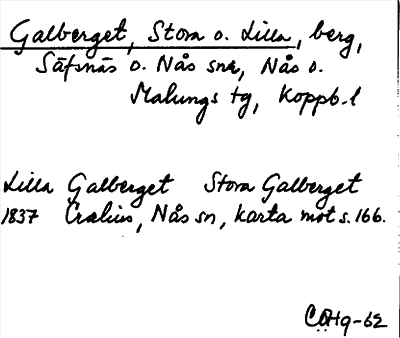 Galberget, Stora o. Lilla, berg,
Säfsnäs o. Nås snr, Nås o.
Malungs tg, Koppb. l
Lilla Galberget Stora Galberget
1837 Crælius, Nås sn, karta mot s. 166.